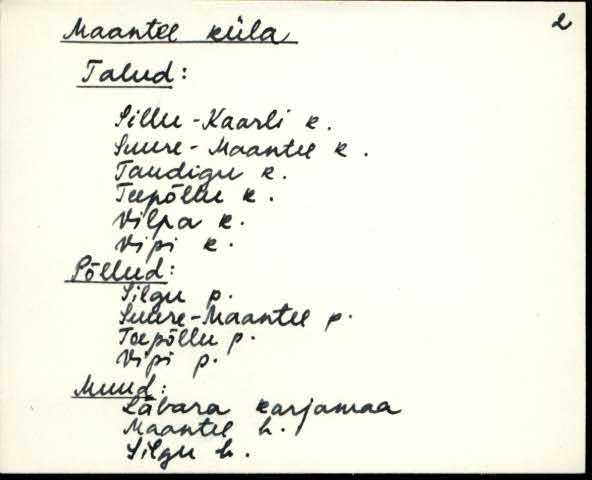 2
Maantee küla
Talud:
Sillu-Kaarli k.
Suure-Maantee k.
Taudigu k.
Teepõllu k.
Vilpa k.
Vipi k.
Põllud:
Silgu p.
Suure-Maantee p.
Teepõllu p.
Vipi p.
Muud:
Läbara karjamaa
Maantee h.
Silgu h.